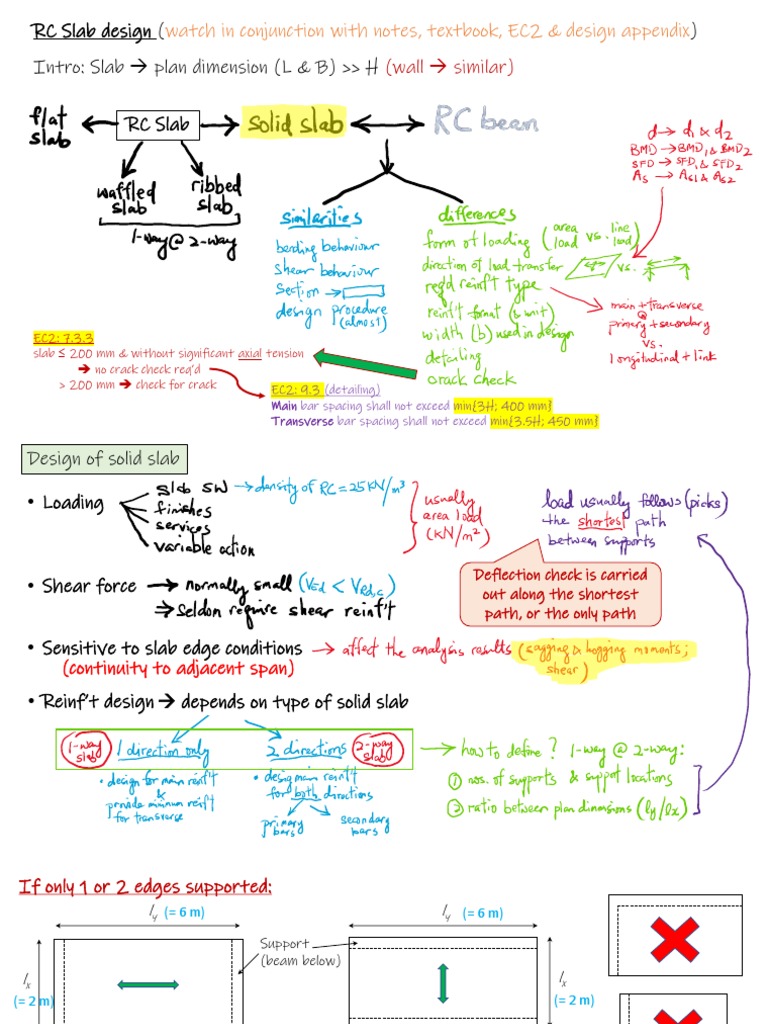 RC Slab design (watch in conjunction with notes, textbook, EC2 & design appendix)
Intro: Slab → plan dimension (L & B) >> H (wall → similar)
flat slab ← RC Slab → solid slab ↔ RC beam
waffled slab
ribbed slab
1-way @ 2-way
d → d1 & d2
BMD → BMD1 & BMD2
SFD → SFD1 & SFD2
As → As1 & As2
similarities
bending behaviour
shear behaviour
section →
design procedure
(almost)
differences
form of loading (area load vs. line load)
direction of load transfer vs.
req'd reinf't type
reinf't format (& unit)
width (b) used in design
detailing
crack check
main + transverse
@
primary + secondary
vs.
longitudinal + link
EC2: 7.3.3
slab ≤ 200 mm & without significant axial tension
→ no crack check req'd
> 200 mm → check for crack
EC2: 9.3 (detailing)
Main bar spacing shall not exceed min{3H; 400 mm}
Transverse bar spacing shall not exceed min{3.5H; 450 mm}
Design of solid slab
• Loading
slab SW → density of RC = 25 kN/m³
finishes
services
variable action
usually
area load
(kN/m²)
load usually follows (picks)
the shortest path
between supports
Deflection check is carried
out along the shortest
path, or the only path
• Shear force → normally small (VEd < VRd,c)
⇒ Seldon require shear reinf't
• Sensitive to slab edge conditions → affect the analysis results (sagging & hogging moments;
shear)
(continuity to adjacent span)
• Reinf't design → depends on type of solid slab
1-way slab 1 direction only
2 directions 2-way slab
→ how to define? 1-way @ 2-way:
① nos. of supports & support locations
② ratio between plan dimensions (ly/lx)
• design for main reinf't
&
provide minimum reinf't
for transverse
• design main reinf't
for both directions
primary bars
secondary bars
If only 1 or 2 edges supported:
ly (= 6 m)
ly (= 6 m)
Support
(beam below)
lx
(= 2 m)
lx
(= 2 m)